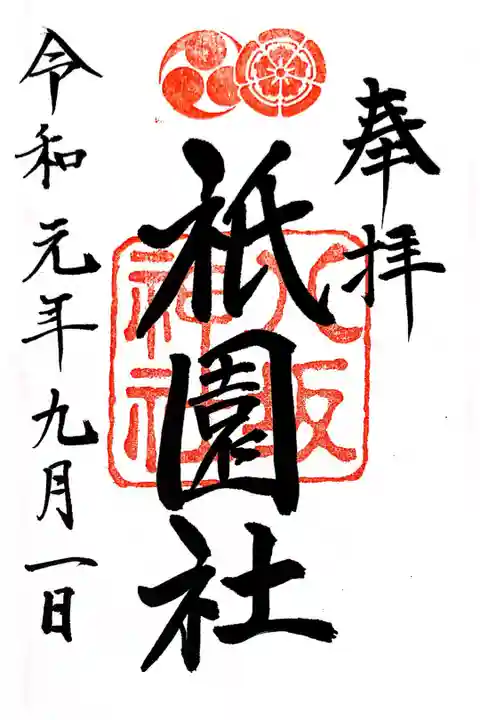 奉拝
八坂
神社
祇園社
令和元年九月一日